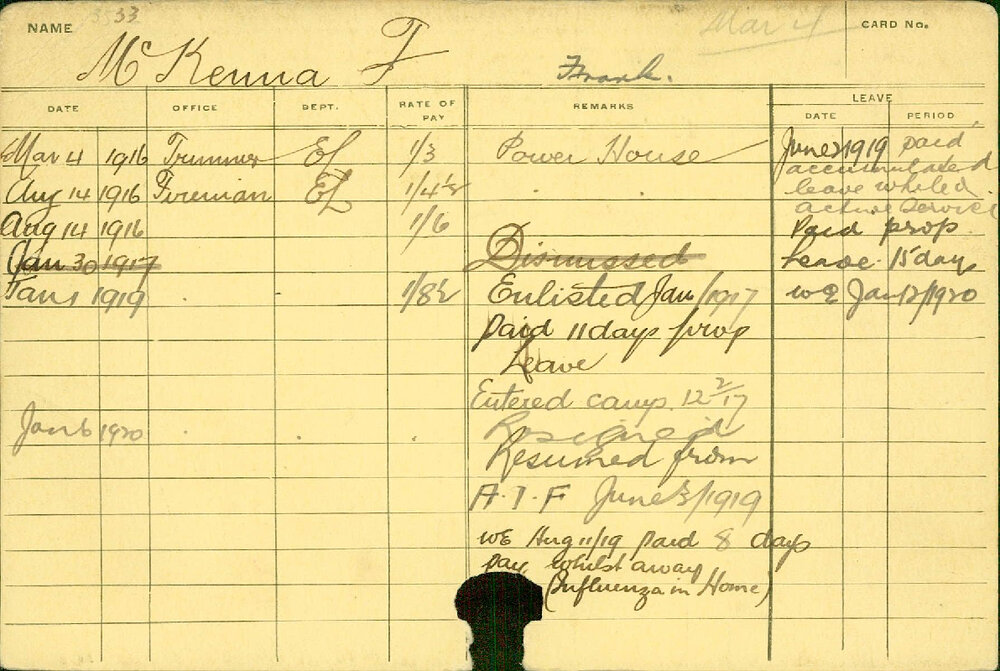 3533
Mar 4
NAME McKenna F CARD No.
Frank.
DATE OFFICE DEPT. RATE OF PAY REMARKS LEAVE
DATE PERIOD
Mar 4 1916 Trimmer El 1/3 Power House June 3 1919 paid
accumulated
Aug 14 1916 Fireman El 1/4½ leave whiled
active service
Aug 14 1916 1/6 Paid prop
Jan 30 1917 Dismissed Leave 15 days
Jan 1 1919 1/8½ Enlisted Jan /1917 we Jan 12/1920
Paid 11 days prop
Leave
Entered camp 12 2/17
Jan 6 1920 Resigned
Resumed from
A.I.F June 3/1919
we Aug 11/19 Paid 8 days
pay whilst away
(Influenza in Home)